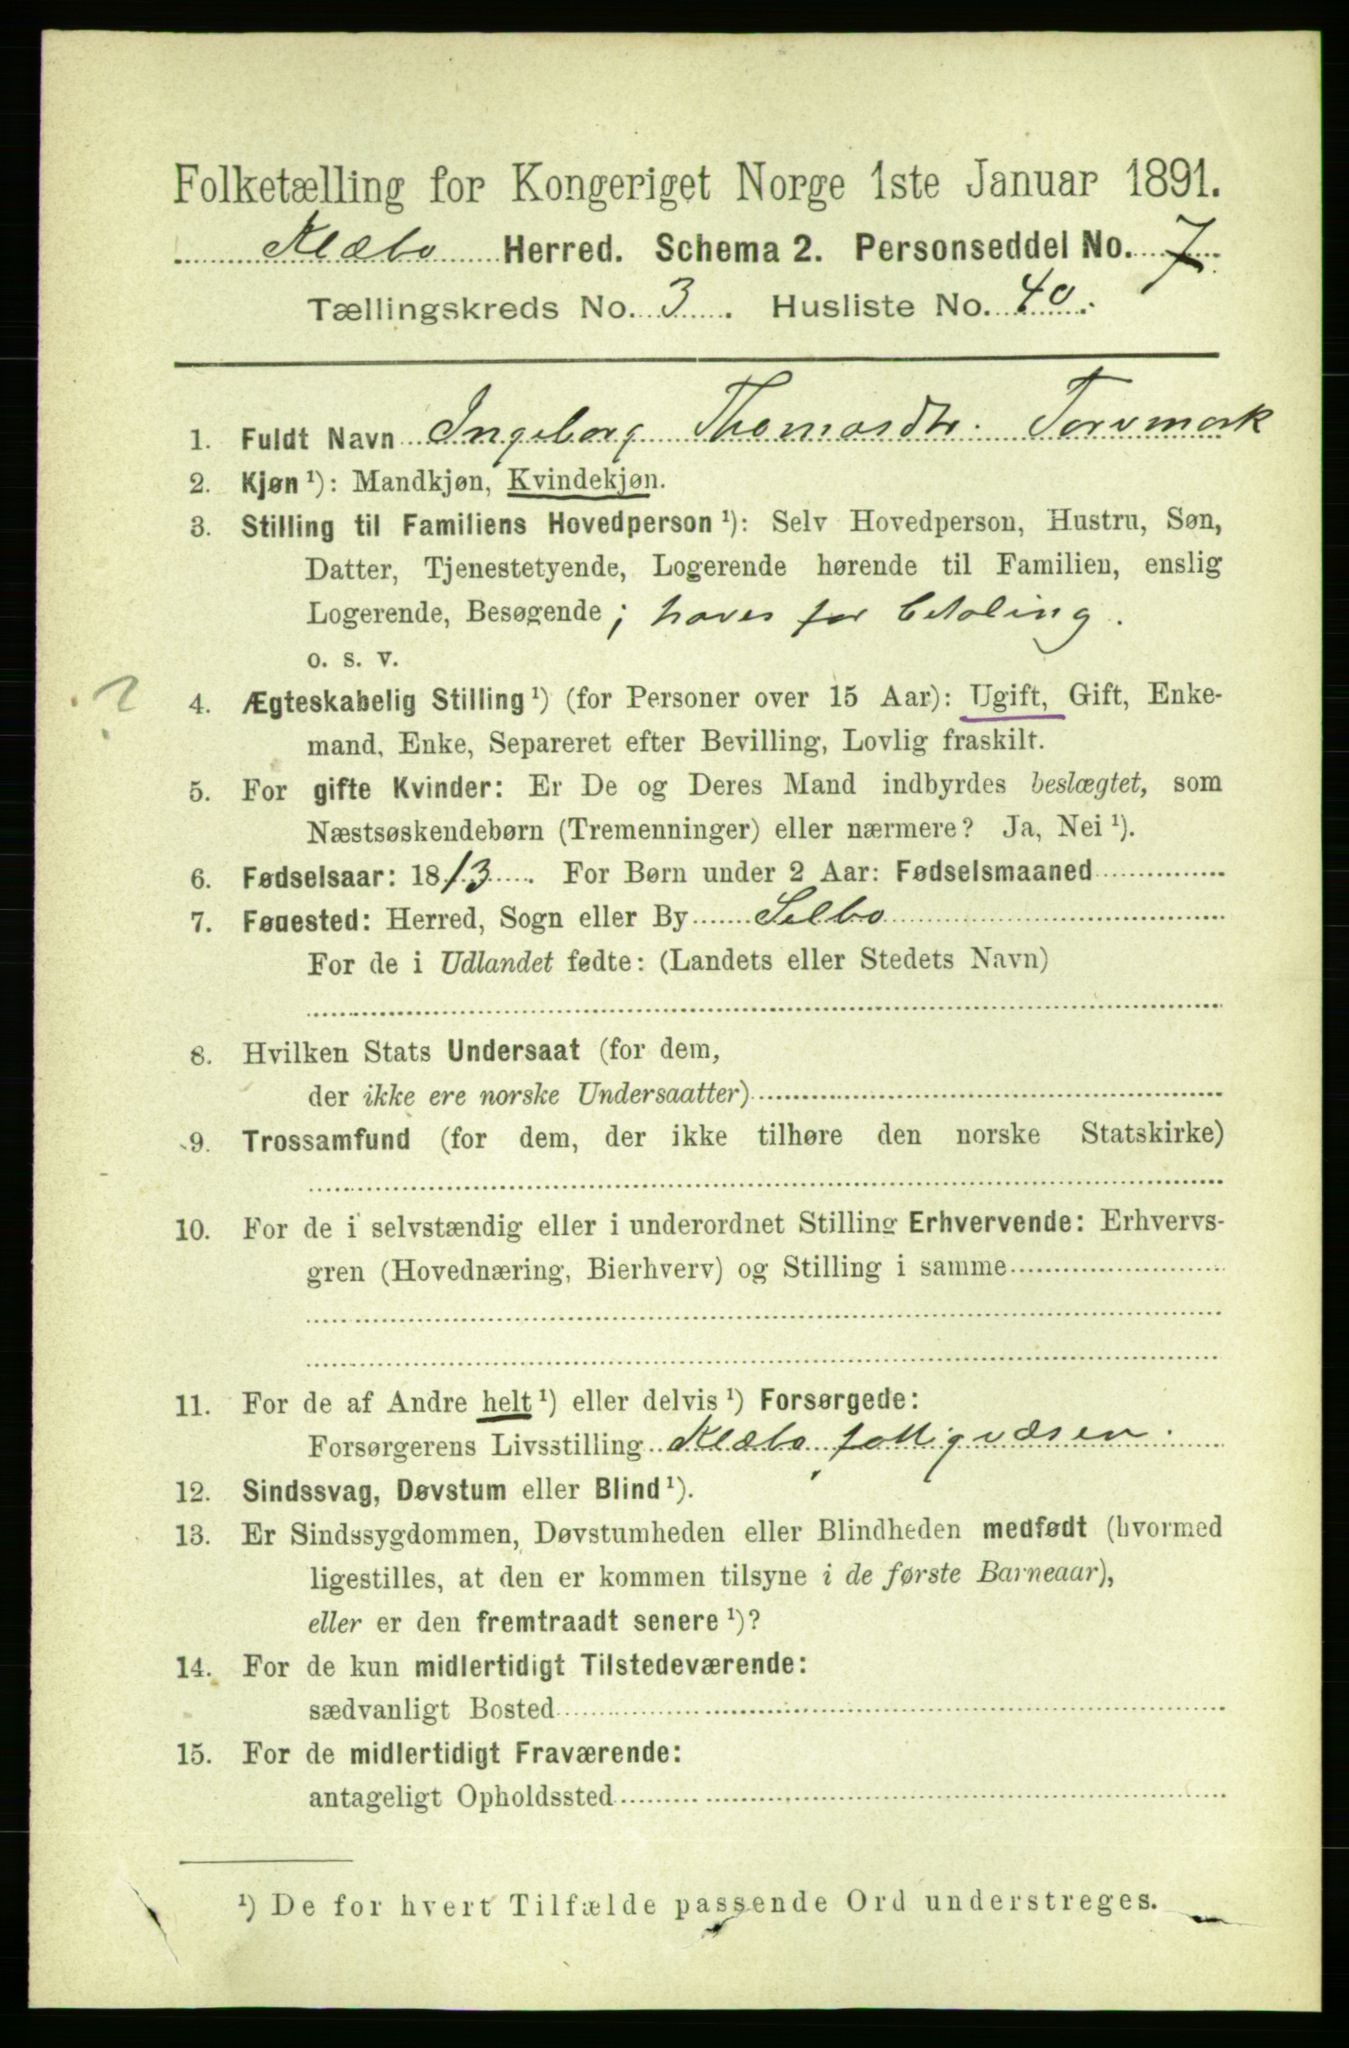 Folketælling for Kongeriget Norge 1ste Januar 1891.
Klæbo Herred. Schema 2. Personseddel No. 7
Tællingskreds No. 3. Husliste No. 40.
1. Fuldt Navn Ingeborg Thomasdtr. Torvmork
2. Kjøn ¹): Mandkjøn, Kvindekjøn.
3. Stilling til Familiens Hovedperson ¹): Selv Hovedperson, Hustru, Søn,
Datter, Tjenestetyende, Logerende hørende til Familien, enslig
Logerende, Besøgende; haves for betaling.
o. s. v.
?
4. Ægteskabelig Stilling ¹) (for Personer over 15 Aar): Ugift, Gift, Enke-
mand, Enke, Separeret efter Bevilling, Lovlig fraskilt.
5. For gifte Kvinder: Er De og Deres Mand indbyrdes beslægtet, som
Næstsøskendebørn (Tremenninger) eller nærmere? Ja, Nei ¹).
6. Fødselsaar: 1813. For Børn under 2 Aar: Fødselsmaaned
7. Føuested: Herred, Sogn eller By Selbo
For de i Udlandet fødte: (Landets eller Stedets Navn)
8. Hvilken Stats Undersaat (for dem,
der ikke ere norske Undersaatter)
9. Trossamfund (for dem, der ikke tilhøre den norske Statskirke)
10. For de i selvstændig eller i underordnet Stilling Erhvervende: Erhvervs-
gren (Hovednæring, Bierhverv) og Stilling i samme
11. For de af Andre helt ¹) eller delvis ¹) Forsørgede:
Forsørgerens Livsstilling Klæbo fattigvæsen.
12. Sindssvag, Døvstum eller Blind ¹).
13. Er Sindssygdommen, Døvstumheden eller Blindheden medfødt (hvormed
ligestilles, at den er kommen tilsyne i de første Barneaar),
eller er den fremtraadt senere ¹)?
14. For de kun midlertidigt Tilstedeværende:
sædvanligt Bosted
15. For de midlertidigt Fraværende:
antageligt Opholdssted
¹) De for hvert Tilfælde passende Ord understreges.